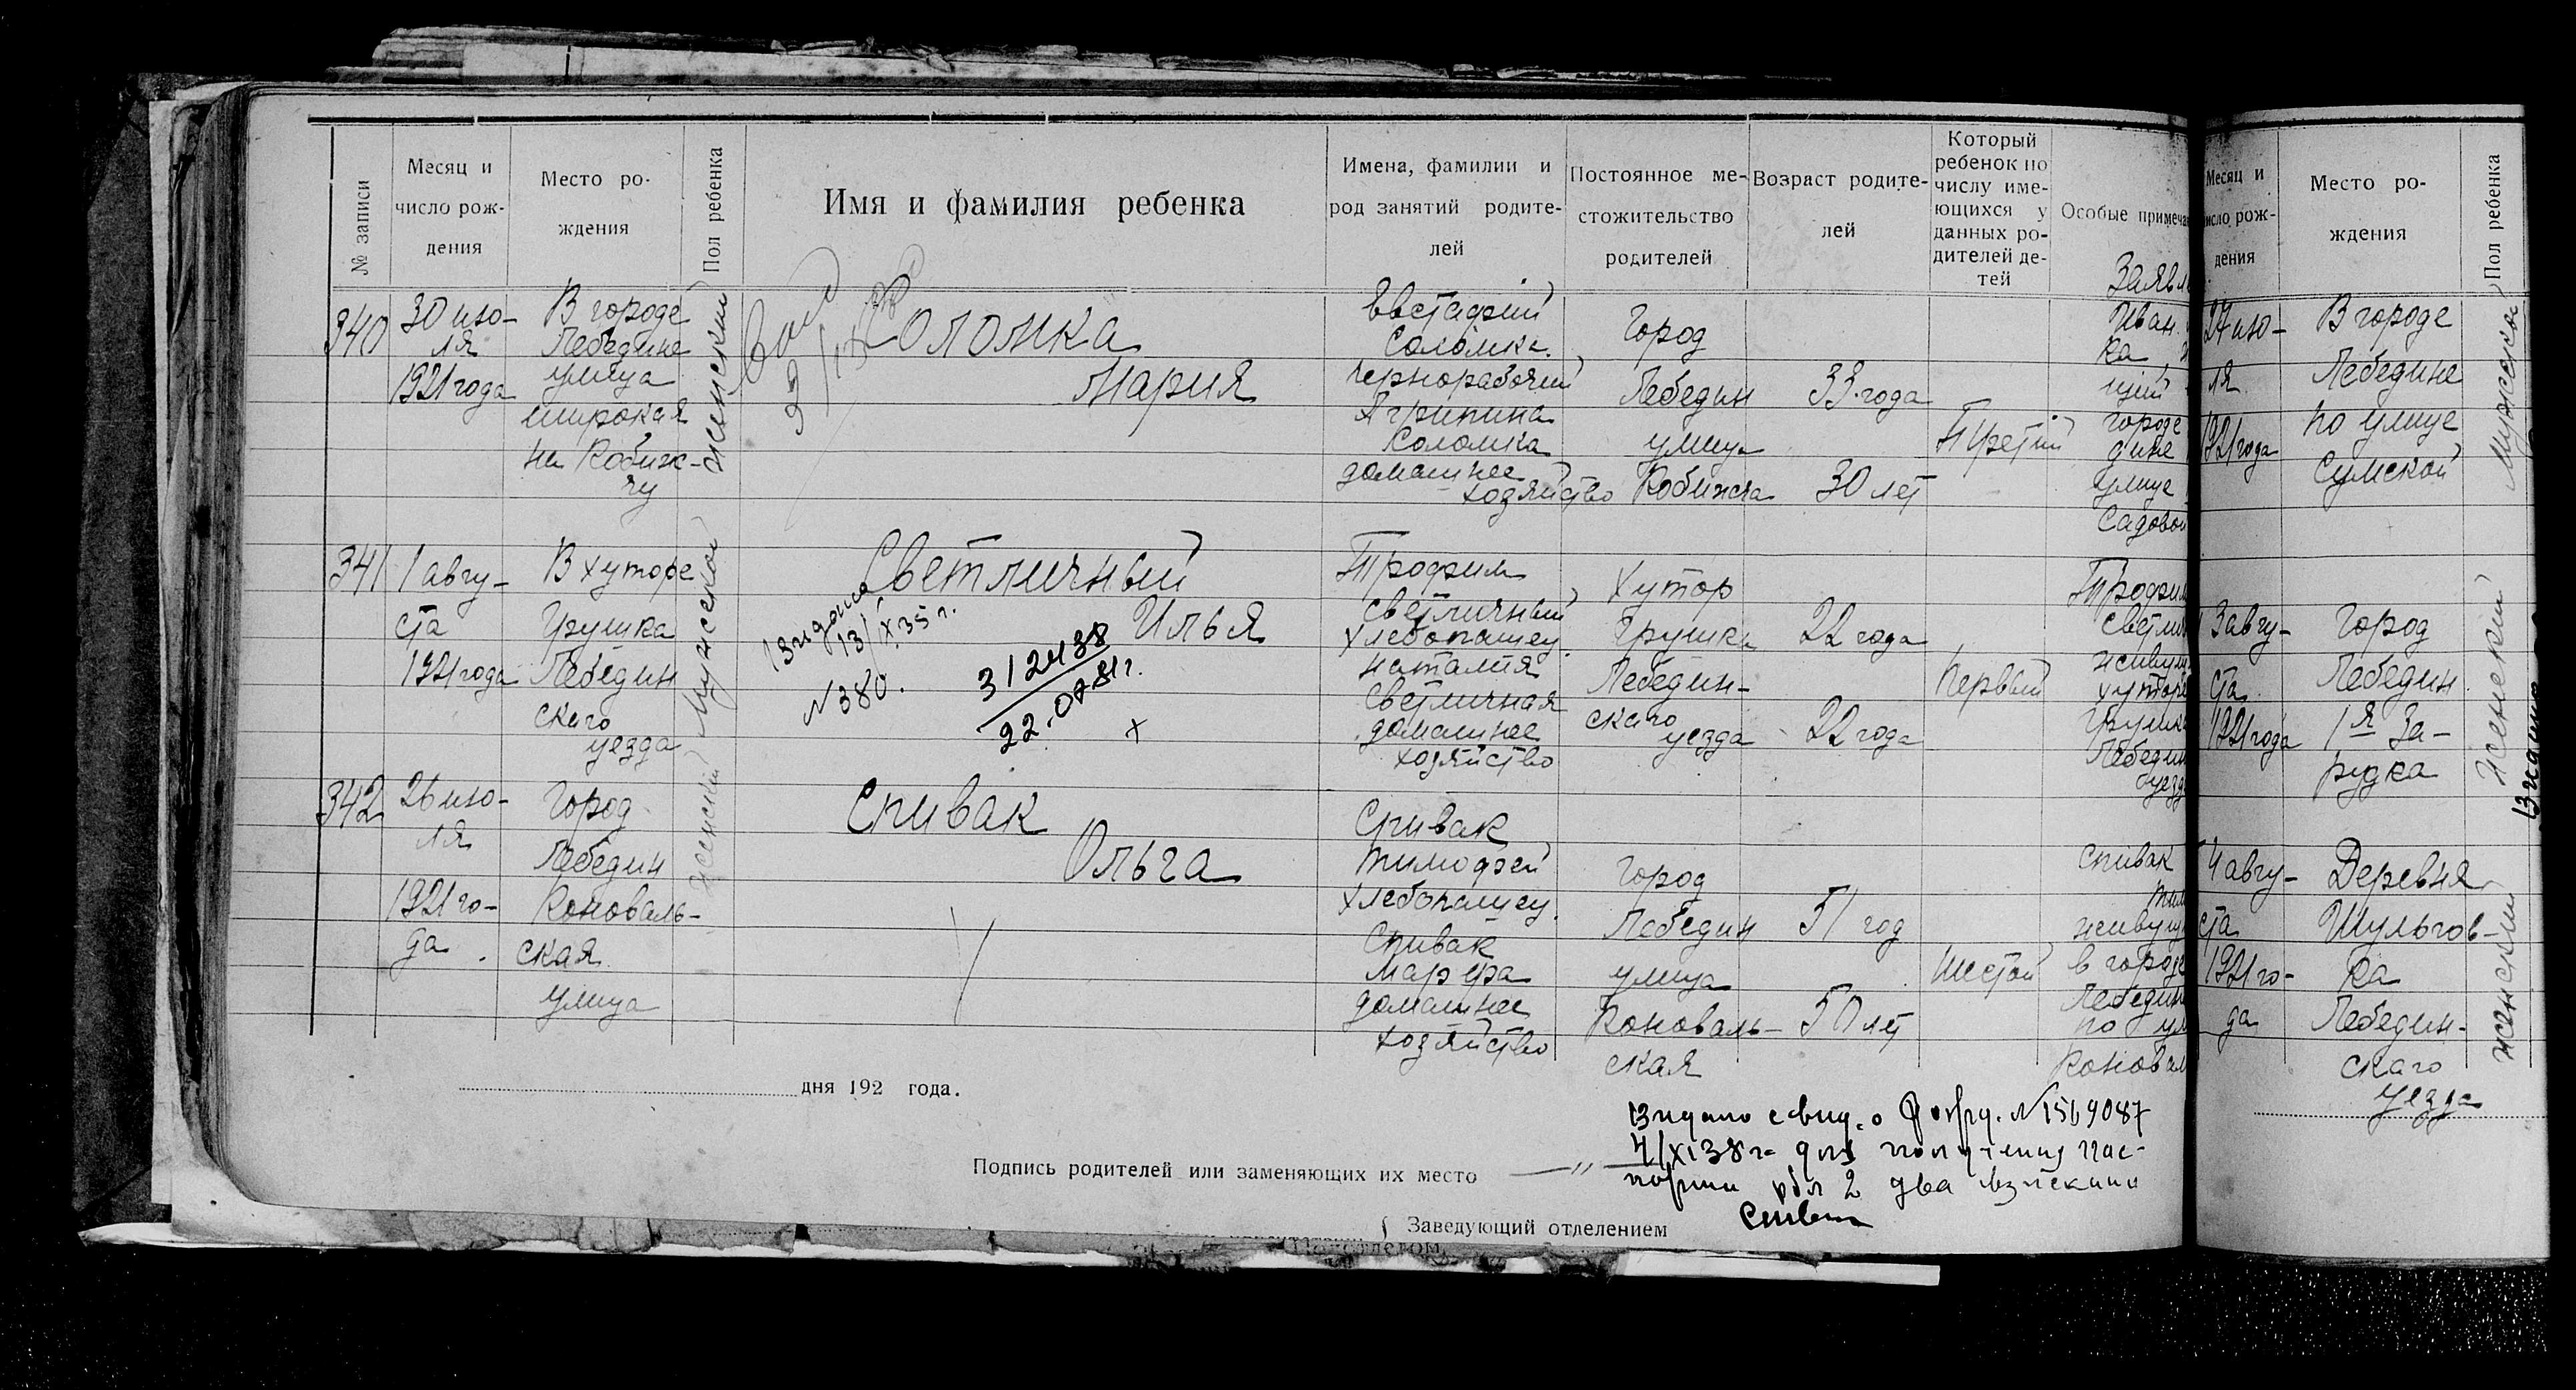 № записи
Месяц и
число рож-
дения
Место ро-
ждения
Пол ребенка
Имя и фамилия ребенка
Имена, фамилии и
род занятий родите-
лей
Постоянное ме-
стожительство
родителей
Возраст родите-
лей
Который
ребенок по
числу име-
ющихся у
данных ро-
дителей де-
тей
Особые примеча
340
30 ию-
ля
1921 года
В городе
Лебедине
улица
широкая
на Кобиж-
чу
женский
Соломка
Мария
Евстафий
Соломка.
Чернорабочий
Агрипина
Соломка
домашнее
хозяйство
Город
Лебедин
улица
Кобижча
33 года
30 лет
Третий
Заявл
Иван
ка
щий
городе
дине
улице
Садовой
341
1 авгу-
ста
1921 года
В хуторе
Грушка
Лебедин
скаго
уезда
мужской
Светличный
Илья
Видана
13/IX 35 г.
№ 380.
312438
22.07.81г.
х
Трофим
Светличный
Хлебопашец.
Наталия
Светличная
домашнее
хозяйство
Хутор
Грушка
Лебедин-
скаго
уезда
22 года
22 года
Первый
Трофим
Светли
живущ
хуторе
Грушка
Лебедин
уезд
342
26 ию-
ля
1921 го-
да.
Город
Лебедин
Коноваль-
ская
улица
женский
Спивак
Ольга
Спивак
Тимофей
Хлебопашец.
Спивак
Марфа
домашнее
хозяйство
Город
Лебедин
улица
Коноваль-
ская
51 год
50 лет
Шестой
Спивак
Тим
живущ
в городе
Лебедин
по ул
Коновал
дня 192 года.
Подпись родителей или заменяющих их место
Видано свид. о рожд. № 1569087
4/XI 38 г. для получения пас-
порта
2 два
Спивак
Заведующий отделением
Месяц и
число рож-
дения
Место ро-
ждения
Пол ребенка
27 ию-
ля
1921 года
В городе
Лебедине
по улице
Сумской
мужской
3 авгу-
ста
1921 года
Город
Лебедин
1я За-
рудка
женский
4 авгу-
ста
1921 го-
да
Деревня
Шульгов-
ка
Лебедин-
скаго
уезда
женский